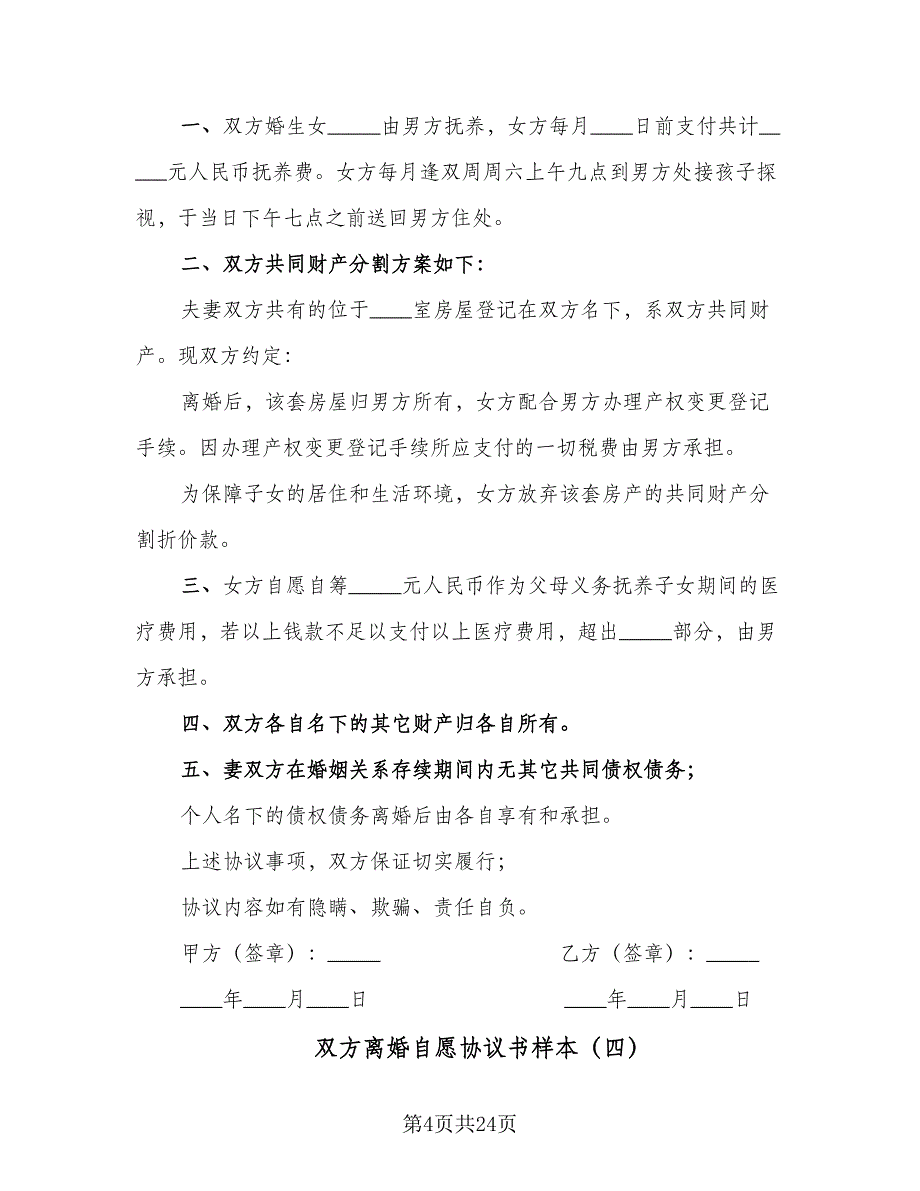 一、双方婚生女_____由男方抚养，女方每月____日前支付共计__
___元人民币抚养费。女方每月逢双周周六上午九点到男方处接孩子探
视，于当日下午七点之前送回男方住处。
二、双方共同财产分割方案如下：
夫妻双方共有的位于____室房屋登记在双方名下，系双方共同财
产。现双方约定：
离婚后，该套房屋归男方所有，女方配合男方办理产权变更登记
手续。因办理产权变更登记手续所应支付的一切税费由男方承担。
为保障子女的居住和生活环境，女方放弃该套房产的共同财产分
割折价款。
三、女方自愿自筹_____元人民币作为父母义务抚养子女期间的医
疗费用，若以上钱款不足以支付以上医疗费用，超出_____部分，由男
方承担。
四、双方各自名下的其它财产归各自所有。
五、妻双方在婚姻关系存续期间内无其它共同债权债务；
个人名下的债权债务离婚后由各自享有和承担。
上述协议事项，双方保证切实履行；
协议内容如有隐瞒、欺骗、责任自负。
甲方（签章）：_____ 乙方（签章）：_____
____年____月____日 ____年____月____日
双方离婚自愿协议书样本（四）
第4页共24页